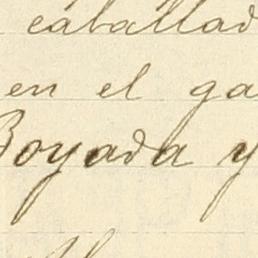 caballad
en el ga
Boyada y